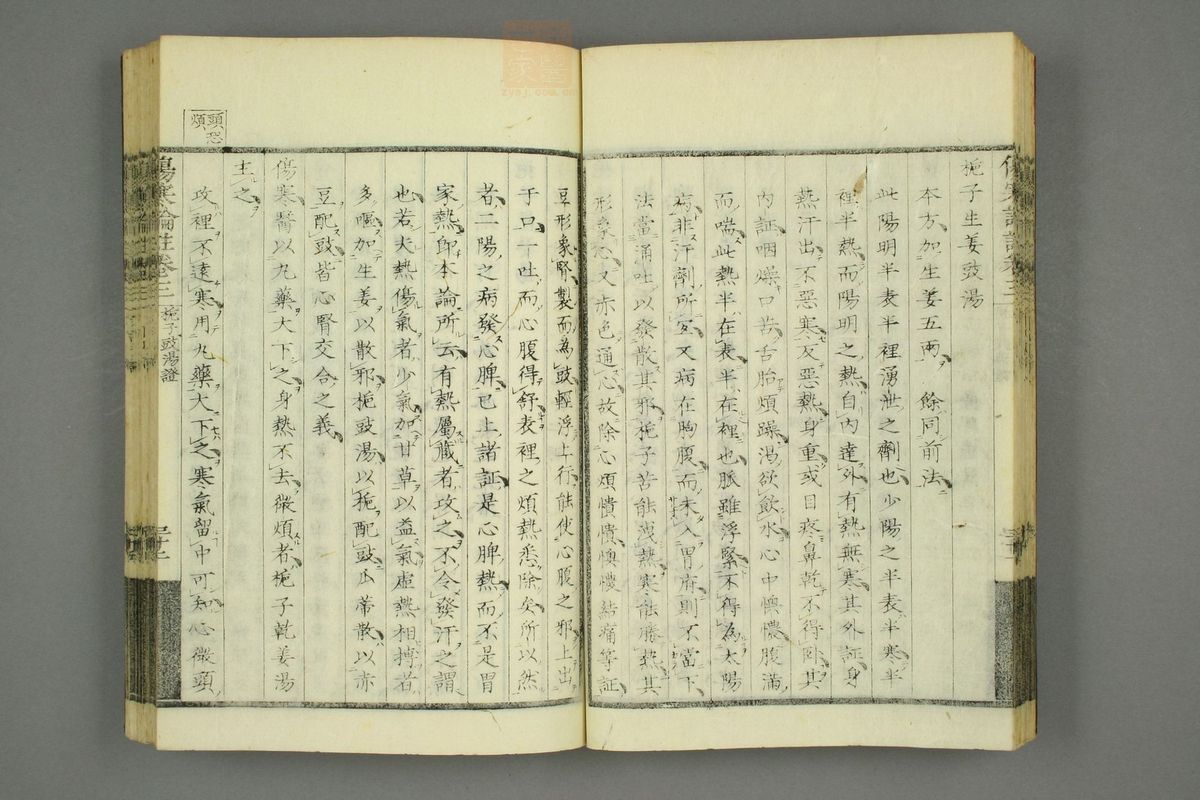 梔子生姜豉湯
本方加生姜五兩　餘同前法
此陽明半表半裡湧泄之劑也少陽之半表半寒半
裡半熱而陽明之熱自内達外有熱無寒其外証身
熱汗出不惡寒反惡熱身重或目疼鼻乾不得臥其
内証咽燥口苦舌胎煩躁渴欲飲水心中懊憹腹滿
而喘此熱半在表半在裡也脈雖浮緊不得為太陽
病非汗劑所宜又病在胸腹而未入胃府則不當下
法當涌吐以發散其邪梔子苦能洩熱寒能勝熱其
形象心又赤色通心故除心煩憒憒懊憹結痛等証
豆形象腎製而為豉輕浮上行能使心腹之邪上出
于口一吐而心腹得舒表裡之煩熱悉除矣所以然
者二陽之病發心脾已上諸証是心脾熱而不是胃
家熱即本論所云有熱屬臟者攻之不令發汗之謂
也若夫熱傷氣者少氣加甘草以益氣虛熱相搏者
多嘔加生姜以散邪梔豉湯以梔配豉瓜蒂散以赤
豆配豉皆心腎交合之義
傷寒醫以丸藥大下之身熱不去微煩者梔子乾姜湯
主之
攻裡不遠寒用丸藥大下之寒氣留中可知心微頭
頭恐煩
傷寒論註卷三
梔子豉湯證